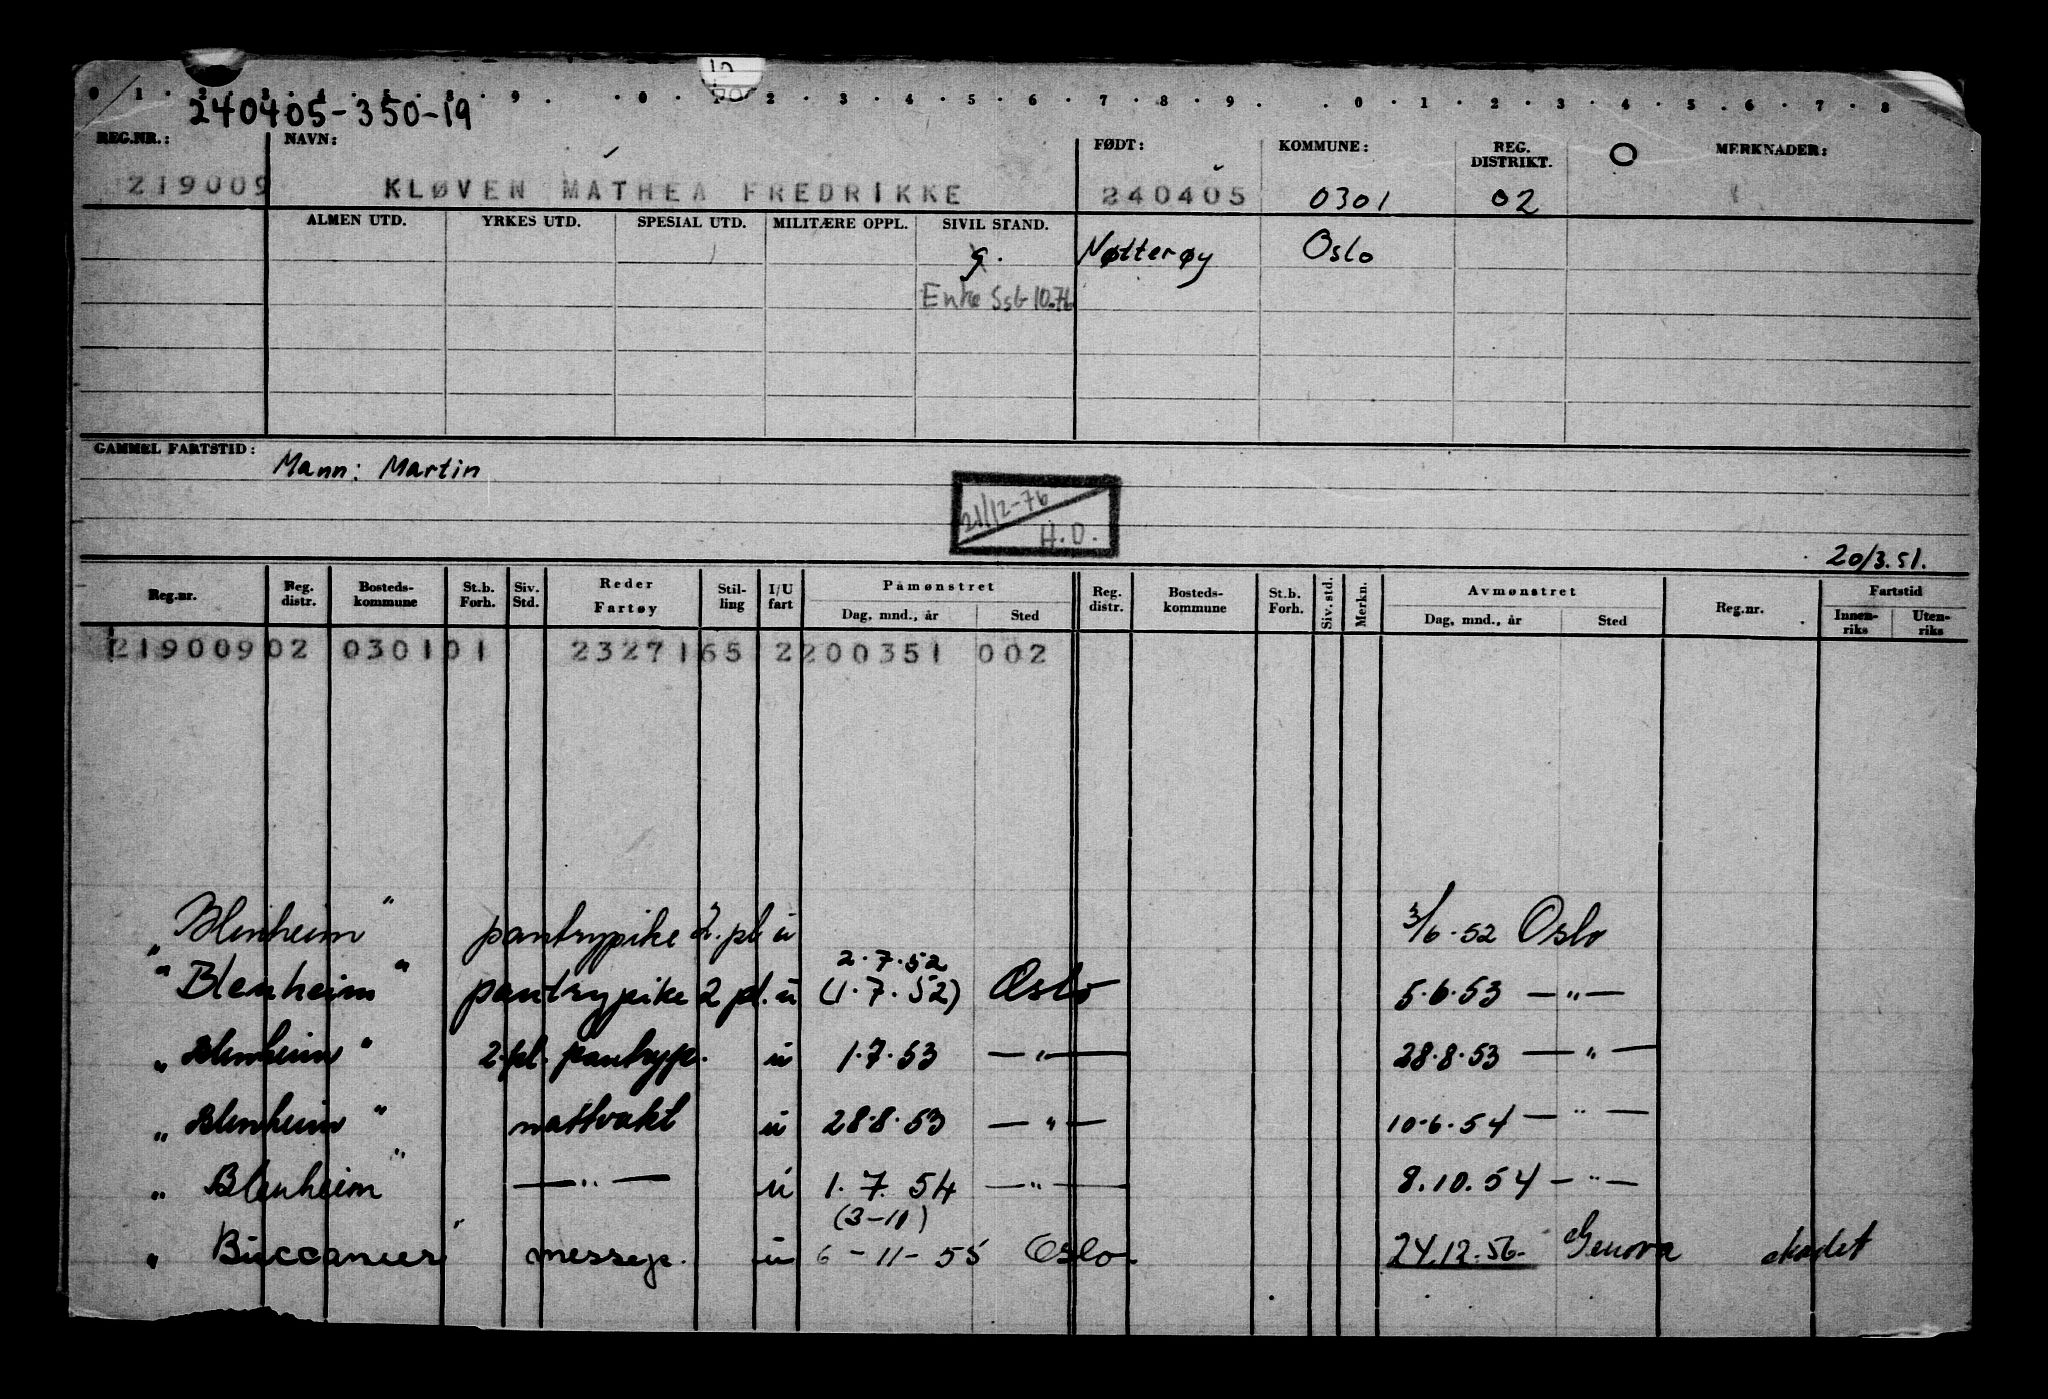 0 1 2 3 4 5 8 9 0 1 2 3 4 5 6 7 8 9 0 1 2 3 4 5 6 7 8
240405-350-19
REG.NR.: NAVN: FØDT: KOMMUNE: REG. DISTRIKT. O MERKNADER:
219009 KLØVEN MATHEA FREDRIKKE 240405 0301 02
ALMEN UTD. YRKES UTD. SPESIAL UTD. MILITÆRE OPPL. SIVIL STAND.
g. Nøtterøy Oslo
Enke Ssb 10.76
GAMMEL FARTSTID: Mann: Martin
21/12-76
H.O.
20/3.51.
Reg.nr. Reg. distr. Bosteds-kommune St.b. Forh. Siv. Std. Reder Fartøy Stil-ling I/U fart Påmønstret Dag, mnd., år Sted Reg. distr. Bosteds-kommune St.b. Forh. Siv. std. Merkn. Avmønstret Dag, mnd., år Sted Reg.nr. Fartstid Innen-riks Uten-riks
219009 02 0301 01 23271 65 2 200351 002
„Blenheim" pantrypike 2. pl u 3/6.52 Oslo
2.7.52
"Blenheim" pantrypike 2 pl. u (1.7.52) Oslo 5.6.53 —"—
„Blenheim" 2.pl. pantryp. u 1.7.53 —"— 28.8.53 —"—
„Blenheim" nattvakt u 28.8.53 —"— 10.6.54 —"—
„Blenheim" —"— u 1.7.54 —"— 8.10.54 —"—
(3-11)
„Buccaneer" messep. u 6-11-55 Oslo. 24.12.56. Genova skadet